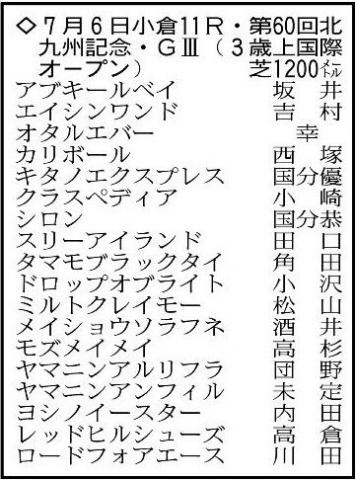 ◇7月6日小倉11R・第60回北
九州記念・GⅢ(3歳上国際
オープン) 芝1200メートル
アブキールベイ 坂井
エイシンワンド 吉村
オタルエバー 幸
カリボール 西塚
キタノエクスプレス 国分優
クラスペディア 小崎
シロン 国分恭
スリーアイランド 田口
タマモブラックタイ 角田
ドロップオブライト 小沢
ミルトクレイモー 松山
メイショウソラフネ 酒井
モズメイメイ 高杉
ヤマニンアルリフラ 団野
ヤマニンアンフィル 未定
ヨシノイースター 内田
レッドヒルシューズ 高倉
ロードフォアエース 川田